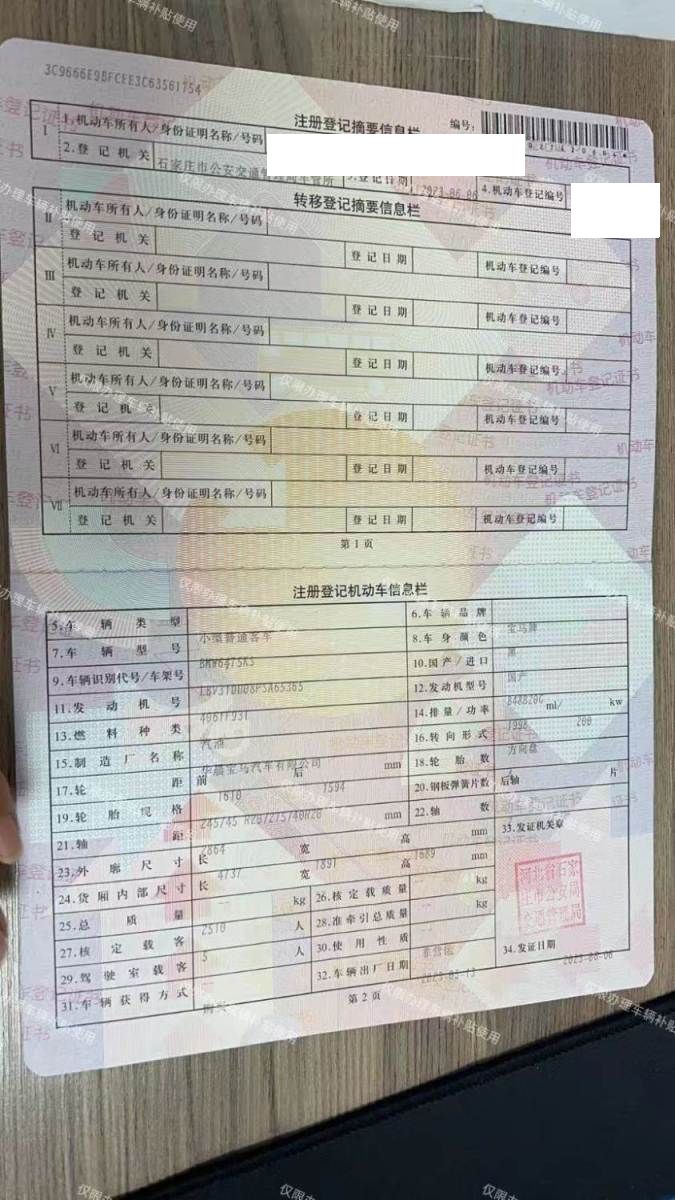 3C9666E9BFCEE3C63561754
注册登记摘要信息栏
编号:
I
1.机动车所有人/身份证明名称/号码
2.登记机关
石家庄市公安交通
3.登记日期
2023-06-06
4.机动车登记编号
转移登记摘要信息栏
II
机动车所有人/身份证明名称/号码
登记机关 登记日期 机动车登记编号
III
机动车所有人/身份证明名称/号码
登记机关 登记日期 机动车登记编号
IV
机动车所有人/身份证明名称/号码
登记机关 登记日期 机动车登记编号
V
机动车所有人/身份证明名称/号码
登记机关 登记日期 机动车登记编号
VI
机动车所有人/身份证明名称/号码
登记机关 登记日期 机动车登记编号
VII
机动车所有人/身份证明名称/号码
登记机关 登记日期 机动车登记编号
第1页
注册登记机动车信息栏
5.车辆类型 小型普通客车 6.车辆品牌 宝马牌
7.车辆型号 BMW6475KS 8.车身颜色 黑
9.车辆识别代号/车架号 10.国产/进口 国产
11.发动机号 12.发动机型号 B48B20G
13.燃料种类 汽油 14.排量/功率 1998 ml/ 200 kw
15.制造厂名称 华晨宝马汽车有限公司 16.转向形式 方向盘
17.轮距 前 1610 后 1594 mm 18.轮胎数
19.轮胎规格 245/45 R20/275/40R20 20.钢板弹簧片数 后轴 片
21.轴距 2864 mm 22.轴数
23.外廓尺寸 长 4737 宽 1891 高 1689 mm 33.发证机关章
24.货厢内部尺寸 长 宽 高 mm
河北省石家庄市公安局交通管理局
25.总质量 2510 kg 26.核定载质量 kg
27.核定载客 5 人 28.准牵引总质量 kg
29.驾驶室载客 人 30.使用性质 非营运
31.车辆获得方式 购买 32.车辆出厂日期 2023-05-13 34.发证日期 2023-06-06
第2页
仅限办理车辆补贴使用
机动车登记证书